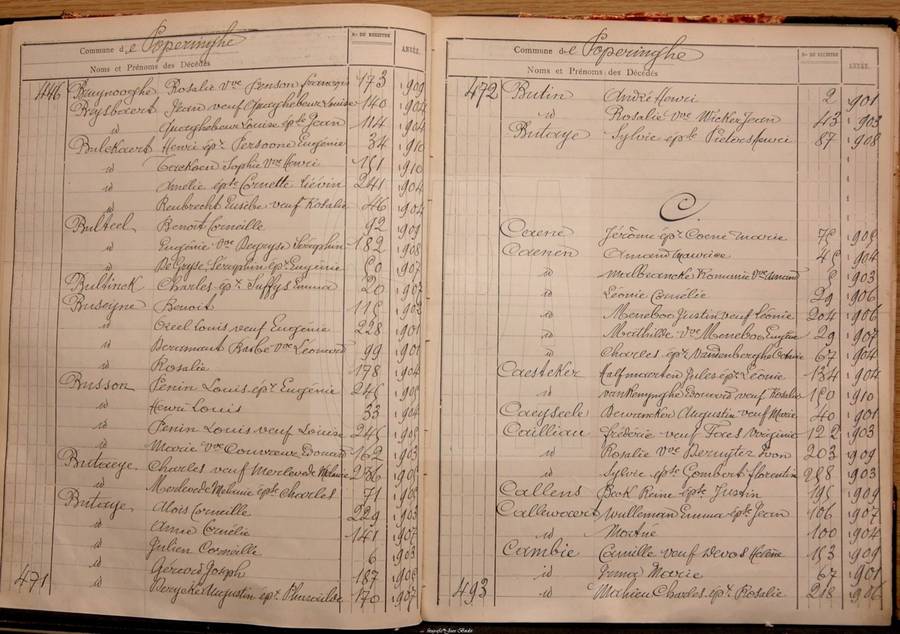 Commune de Poperinghe
Nos DE REGISTRE
ANNÉE.
Noms et Prénoms des Décédés
446 Bruynooghe Rosalie Vve Fenson François 173 1909
Brysbaert Jean veuf Quaghebeur Louise 140 1904
id Quaghebeur Louise épte Jean 114 1904
Bulckaert Henri épx Persoone Eugénie 34 1910
id Sophie Vve Henri 1910
id Amélie épte Cornette Liévin 241 1904
id Reubrecht Eusèbe veuf Rosalie 46 1904
Bulteel Benoit Corneille 92 1909
id Eugénie Vve Degryse Séraphin 182 1908
id DeGryse Séraphin épx Eugénie 1907
Bultinck Charles épx Suffys Emma 20 1907
Buseyne Benoit 1902
id Creel Louis veuf Eugénie 228 1901
id Deramaut Barbe Vve Léonard 99 1901
id Rosalie 178 1904
Busson Fenin Louis épx Eugénie 1905
id Henri Louis 33 1904
id Fenin Louis veuf Louise 1905
id Marie Vve Couvreur Edouard 162 1903
Butaeye Charles veuf Merlevede Mélanie 1905
id Merlevede Mélanie épte Charles 71
Butaye Aloïs Corneille 229 1903
id Anna Cornélie 141 1907
id Julien Corneille 6 1903
id Gérard Joseph 187
471 id Augustin épx 170 1907
Commune de Poperinghe
Nos DE REGISTRE
ANNÉE.
Noms et Prénoms des Décédés
472 Butin André Henri 2 1901
id Rosalie Vve Wicker Jean 43 1903
Butaye Sylvie épte Pieters Henri 87 1908
C.
Caene Jérôme épx Coene Marie
Caenen Amand Maurice 1904
id Malbrancke Romanie Vve Amand 1903
id Léonie Cornélie 29 1906
id Meneboo Justin veuf Léonie 204 1906
id Mathilde Vve Meneboo Eugène 29 1907
id Charles épx Vandenberghe 67 1904
Caesteker Halfmaerten Jules épx Léonie 134 1904
id Edouard veuf Rosalie 1910
Caeyseele Dewancker Augustin veuf Marie 40 1901
Cailliau Frédéric veuf Virginie 122 1903
id Rosalie Vve Deruyter Ivon 203 1909
id Sylvie épte Gombert Florentin 1903
Callens Beck Reine épte Justin 1909
Callewaert Wulleman Emma épte Jean 106 1907
id 100 1904
Cambie Camille veuf Devos Hélène 1909
id Irma Marie 67 1901
493 id Mahieu Charles épx Rosalie 1906